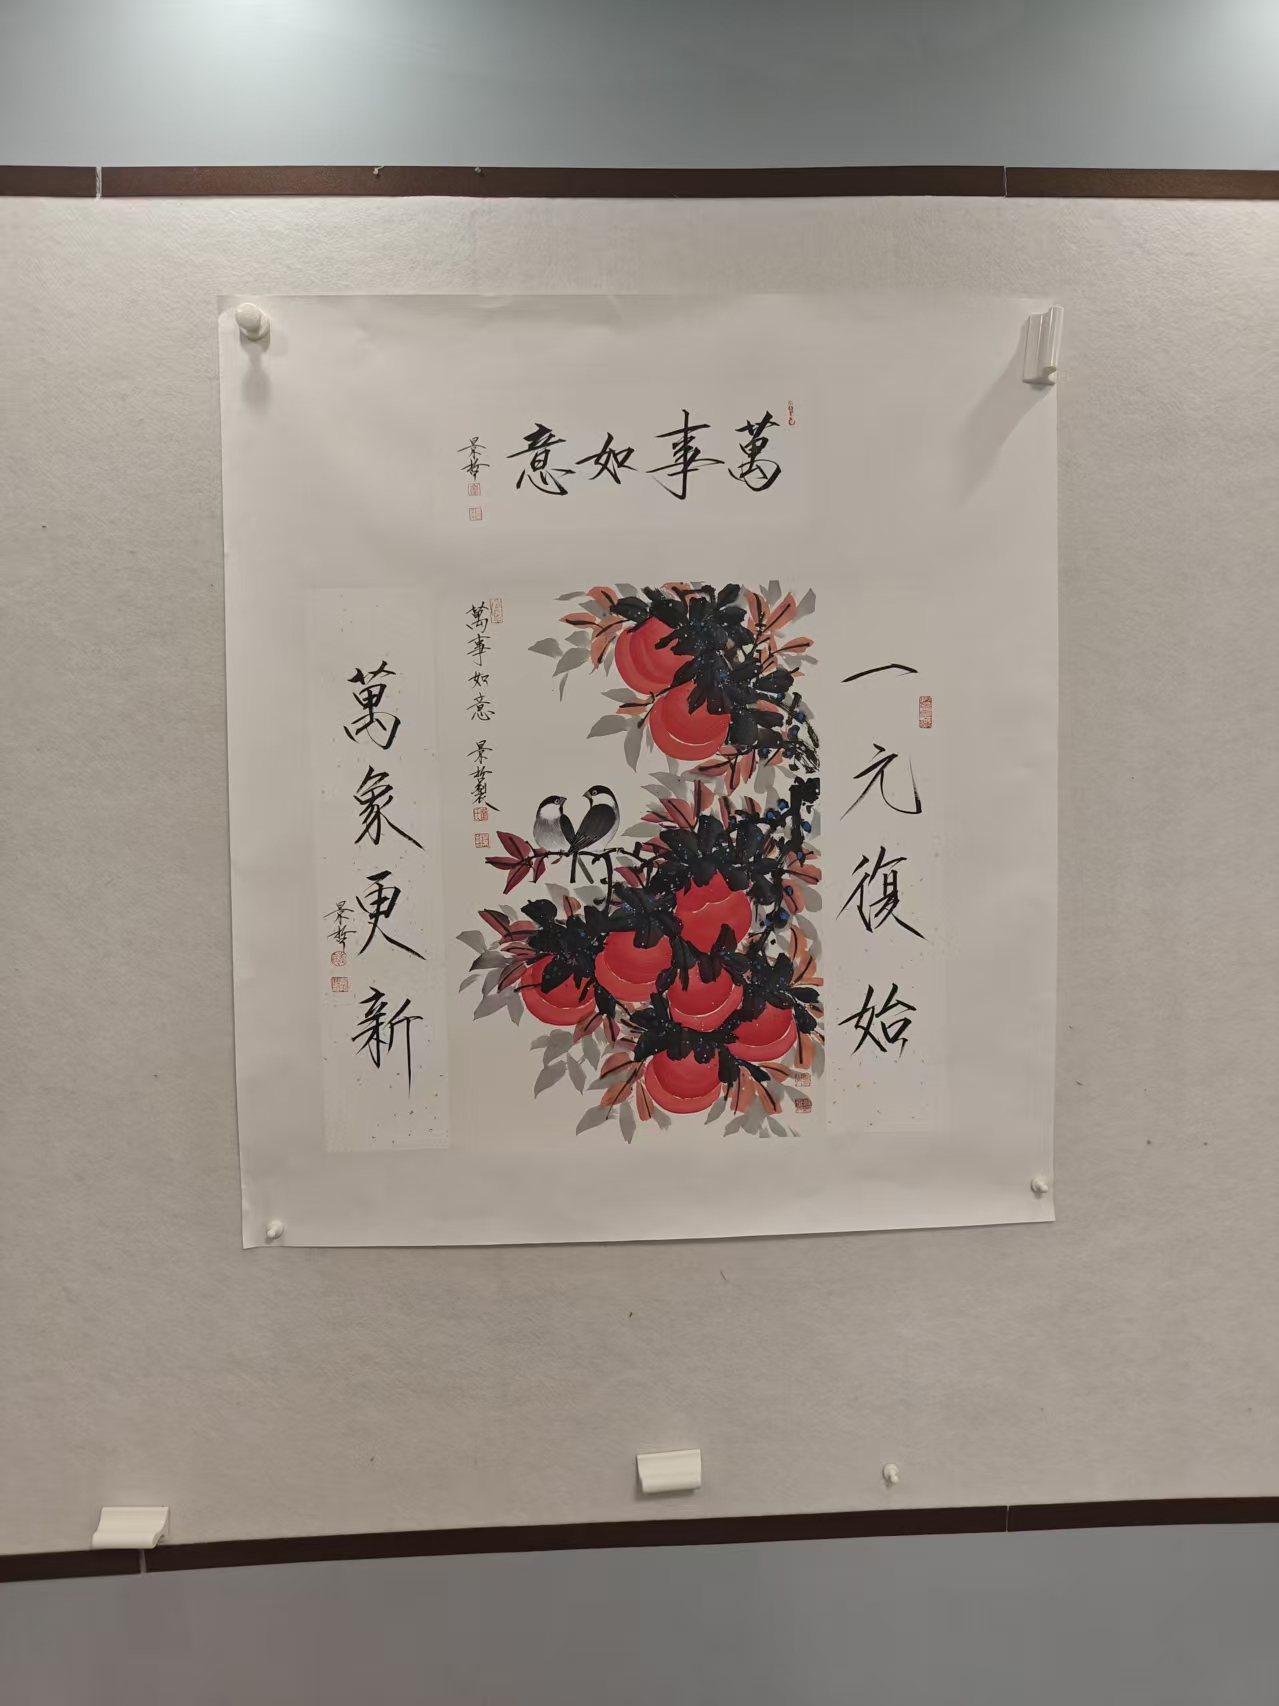 萬事如意
景哲
一元復始
萬象更新
景哲
萬事如意 景哲製